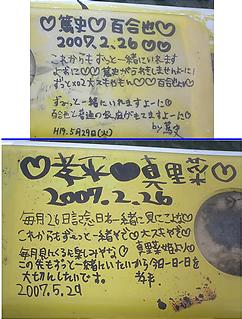 ♡篤史♡百合也♡
2007.2.26♡♡
これからもずっと一緒にいれます
ように♡♡篤史が浮気しませんように!
ずっと×02大スキやもん♡百合也♡
ずぅーっと一緒にいれますよーに♡
百合也と普通の家庭がもてますよーに♡
H19.5月29日(火) by篤史
♡孝平♡♥真里菜♡
2007.2.26
毎月26日記念日本一緒に見にこよな♡
これからもずぅーっと一緒やで♡大スキやで♡
毎月見にくるん楽しみやな♡真里菜姫より♡
この先もずっと一緒にいたいから今日一日一日を
大切にしたいです。 孝平
2007.5.29